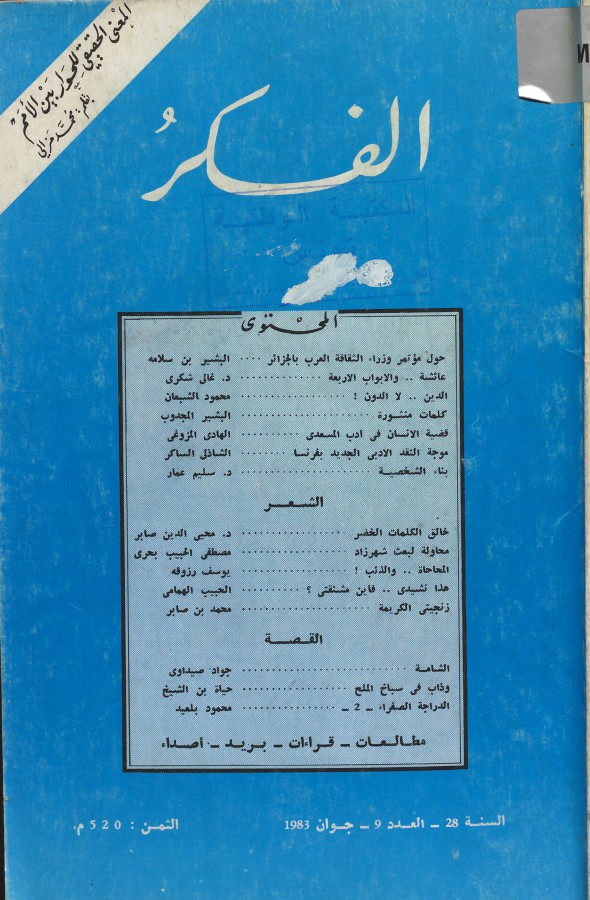 المعنى الحقيقي للحوار بين الأمم
بقلم: محمد مزالي
الفكر
المكتبة الوطنية
المحتوى
حول مؤتمر وزراء الثقافة العرب بالجزائر .... البشير بن سلامه
عائشة .. والابواب الاربعة .... د. غالى شكرى
الدين .. لا الدون ! .... محمود الشبعان
كلمات منشورة .... البشير المجدوب
قضية الانسان فى ادب المسعدى .... الهادى المزوغى
موجة النقد الادبى الجديد بفرنسا .... الشاذلى الساكر
بناء الشخصية .... د. سليم عمار
الشعر
خالق الكلمات الخضر .... د. محيى الدين صابر
محاولة لبعث شهرزاد .... مصطفى الحبيب بحرى
المحاحاة .. والذئب ! .... يوسف رزوقه
هذا نشيدى .. فاين مشنقتى ؟ .... الحبيب الهمامى
زنجيتى الكريمة .... محمد بن صابر
القصة
الشامة .... جواد صيداوى
وذاب فى سباخ الملح .... حياة بن الشيخ
الدراجة الصفراء - 2 - .... محمود بلعيد
مطالعات - قراءات - بريد - أصداء
السنة 28 - العدد 9 - جوان 1983 الثمن : 520 م.